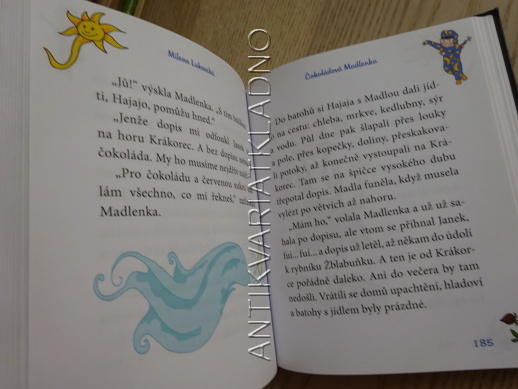 Milena Lukešová
„Jů!" výskla Madlenka. „S tím
ti, Hajajo, pomůžu hned."
„Jenže dopis mi odfoukl Janek
na horu Krákorec. A bez dopisu není
čokoláda. My ho musíme nejdřív najít."
„Pro čokoládu a červenou sukni
lám všechno, co mi řekneš,"
Madlenka.
ANTIKVARIATKLADNO
Čokoládová Madlenka
Do batohů si Hajaja s Madlou dali jíd-
lo na cestu: chleba, mrkve, kedlubny, sýr
a vodu. Půl dne pak šlapali přes louky
a pole, přes kopečky, doliny, přeskakova-
li potoky, až konečně vystoupali na Krá-
korec. Tam se na špičce vysokého dubu
třepotal dopis. Madla funěla, když musela
vylézt po větvích až nahoru.
„Mám ho," volala Madlenka a už už sa-
hala po dopisu, ale vtom se přihnal Janek,
fuí... fuí... a dopis už letěl, až někam do údolí
k rybníku Žblabuňku. A ten je od Krákor-
ce pořádně daleko. Ani do večera by tam
nedošli. Vrátili se domů upachtění, hladoví
a batohy s jídlem byly prázdné.
185